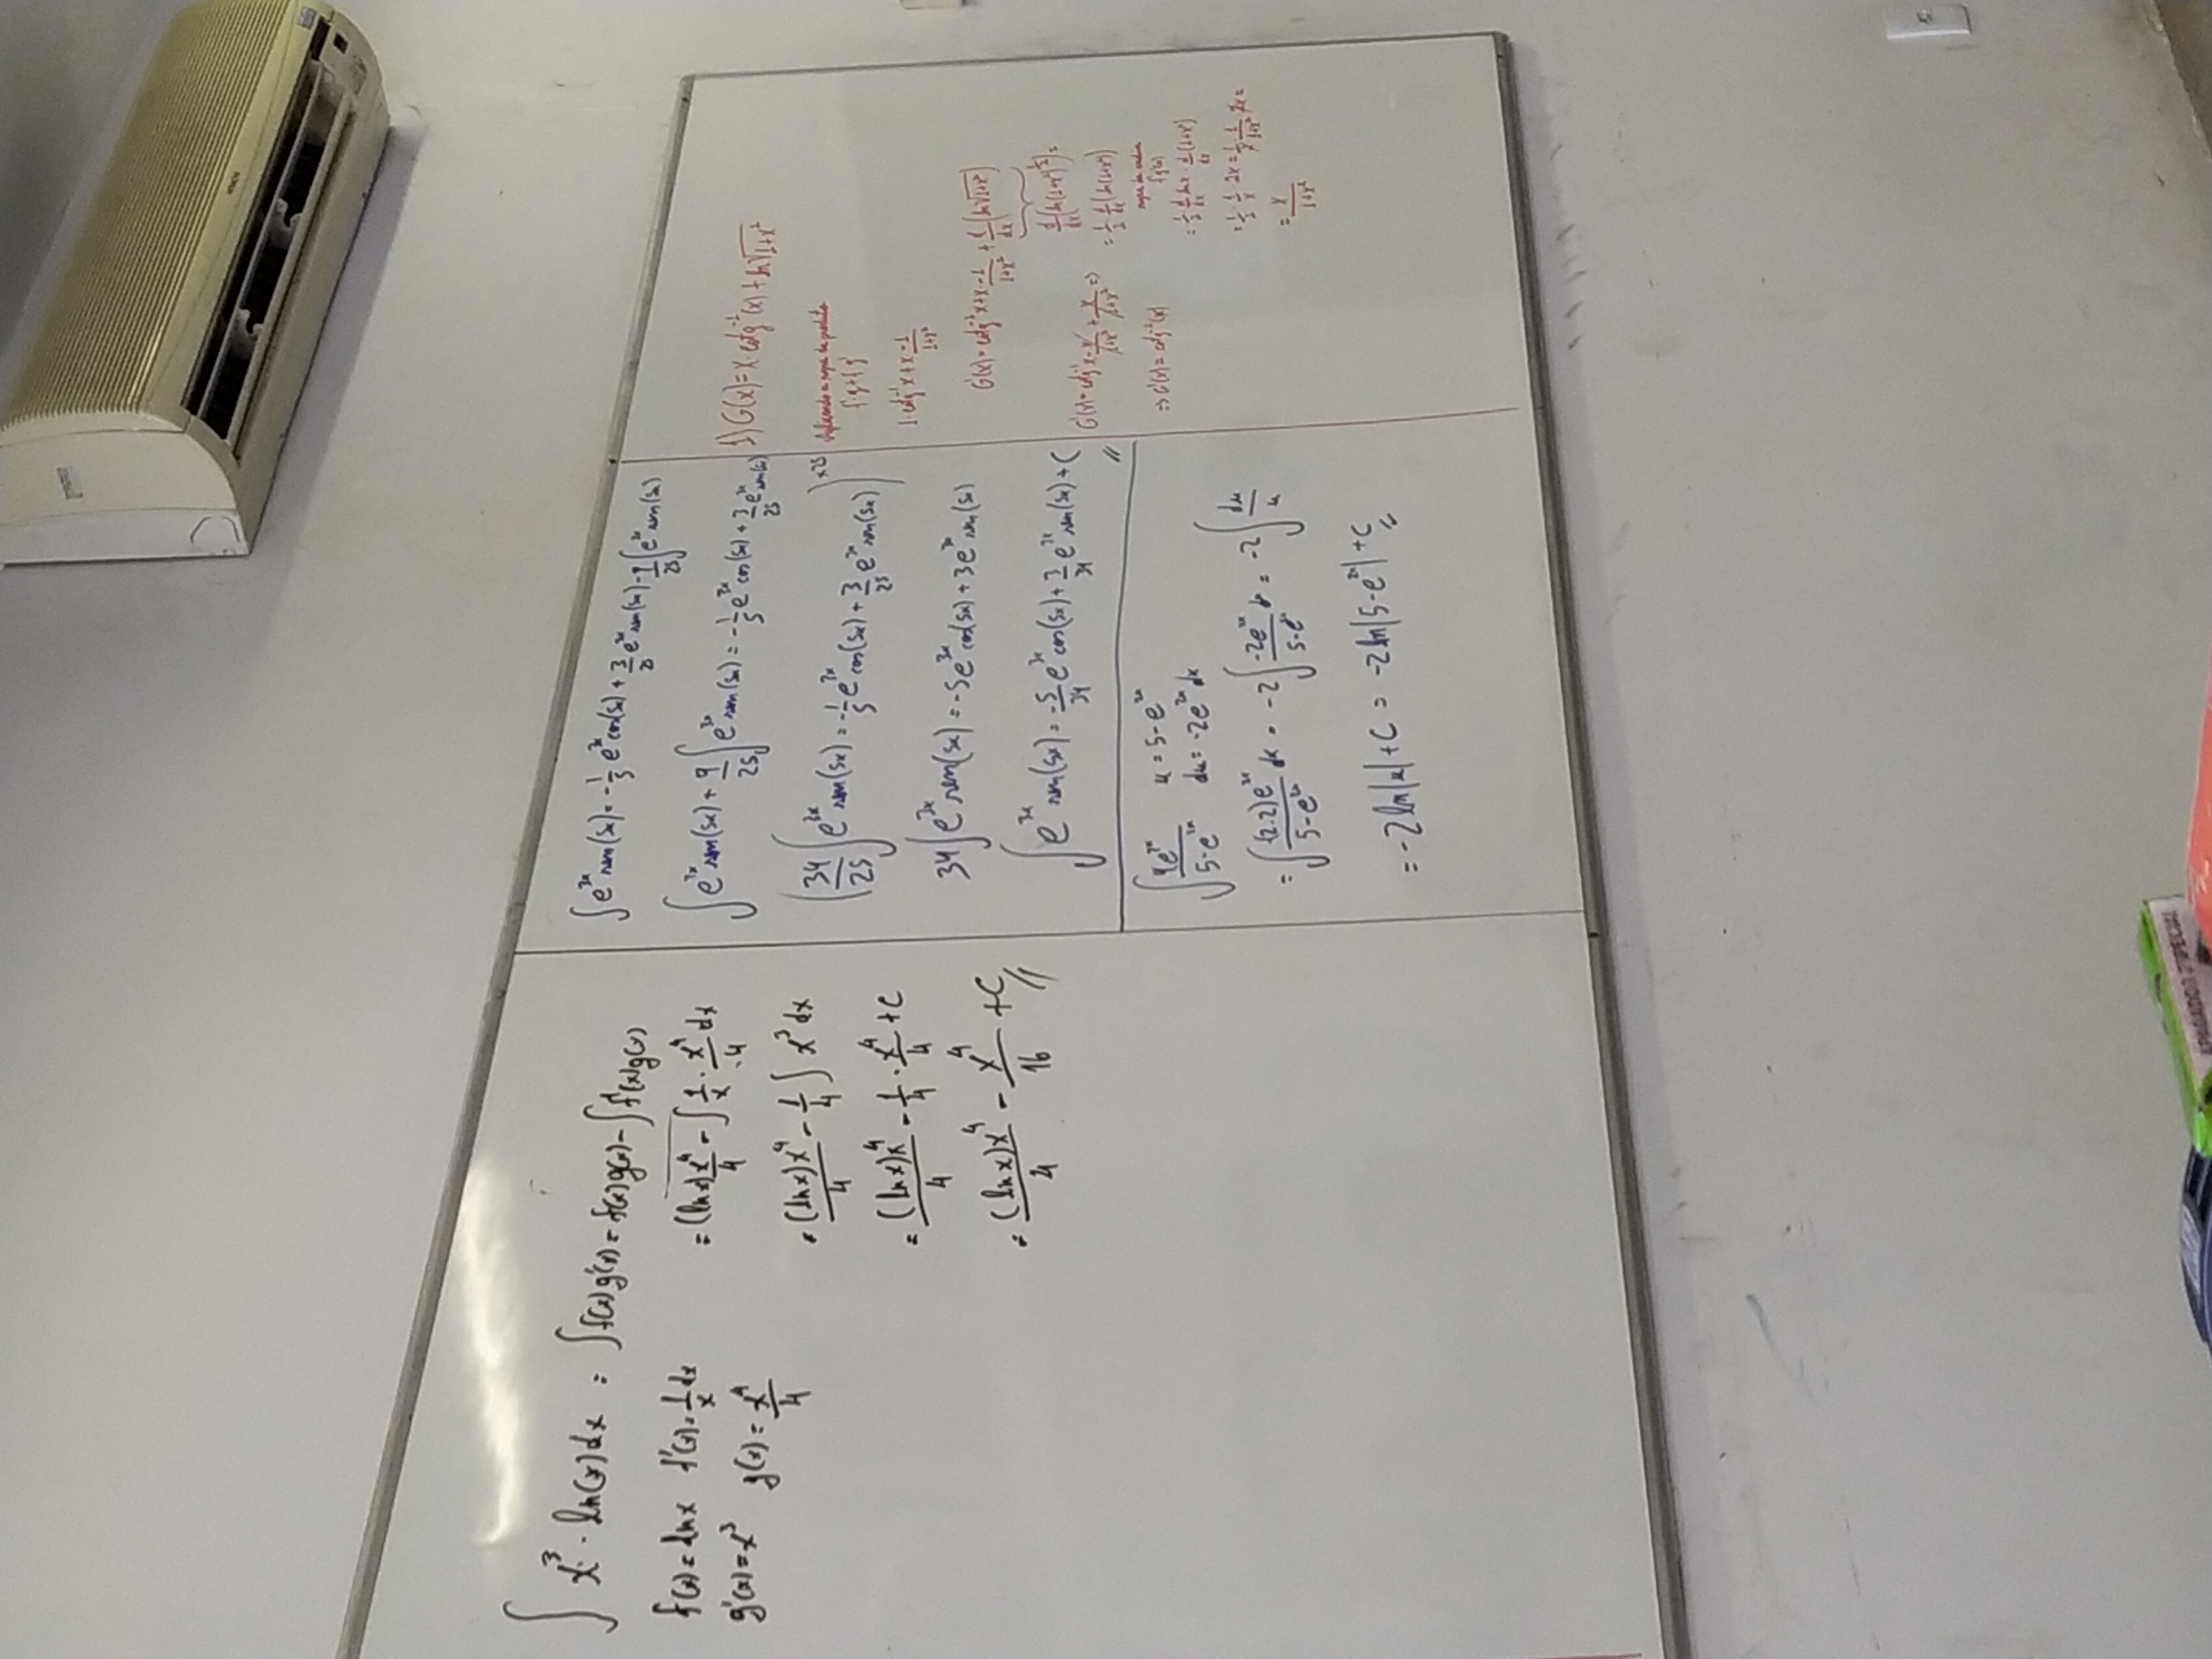 ∫ x³ · ln(x) dx = ∫f(x)g'(x) = f(x)g(x) - ∫f'(x)g(x)
f(x) = ln x f'(x) = 1/x dx
g'(x) = x³ g(x) = x⁴/4
= (ln x) x⁴/4 - ∫ 1/x · x⁴/4 dx
= (ln x)x⁴/4 - 1/4 ∫ x³ dx
= (ln x)x⁴/4 - 1/4 · x⁴/4 + C
= (ln x)x⁴/4 - x⁴/16 + C //
∫e³ˣ sen(5x) = -1/5 e³ˣ cos(5x) + 3/25 e³ˣ sen(5x) - 9/25 ∫e³ˣ sen(5x)
∫e³ˣ sen(5x) + 9/25 ∫e³ˣ sen(5x) = -1/5 e³ˣ cos(5x) + 3/25 e³ˣ sen(5x)
(34/25 ∫e³ˣ sen(5x) = -1/5 e³ˣ cos(5x) + 3/25 e³ˣ sen(5x)) ×25
34∫e³ˣ sen(5x) = -5e³ˣ cos(5x) + 3e³ˣ sen(5x)
∫e³ˣ sen(5x) = -5/34 e³ˣ cos(5x) + 3/34 e³ˣ sen(5x) + C //
∫ 4e²ˣ/5-e²ˣ u = 5-e²ˣ
du = -2e²ˣ dx
= ∫ (2.2)e²ˣ/5-e²ˣ dx = -2∫ -2e²ˣ/5-e²ˣ dx = -2∫ du/u
= -2 ln|u| + C = -2 ln|5-e²ˣ| + C //
1) G(x) = x · cotg⁻¹(x) + ln√1+x²
Aplicando a regra do produto
f'·g + f·g'
1·cotg⁻¹x + x · -1/1+x²
G'(x) = cotg⁻¹x + x · -1/1+x² + d/dx (ln√1+x²)
d/dx (ln(1+x²)^1/2) =
= 1/2 · d/dx (ln(1+x²))
regra da cadeia
= 1/2 · d/dx ln x · d/dx (1+x²)
= 1/2 · 1/x · 2x = 1/2 · 1/1+x² · 2x =
= x/1+x²
G'(x) = cotg⁻¹x - x/1+x² + x/1+x² =>
=> G'(x) = cotg⁻¹(x)
HITACHI
APAGADOR ESPECIAL